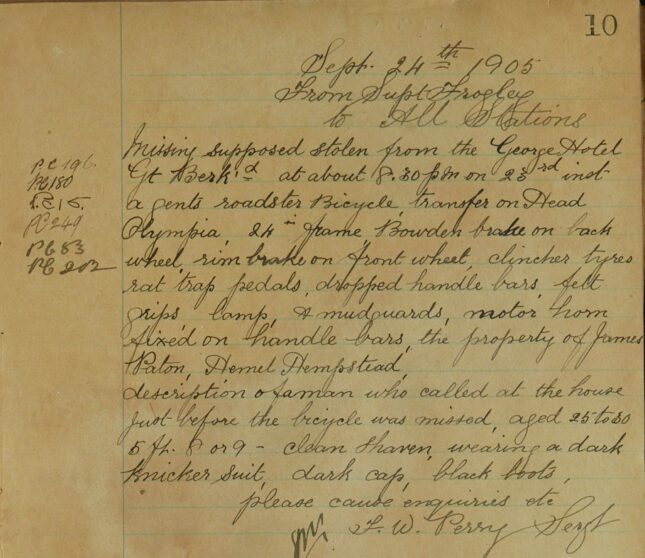 10
Sept. 24th 1905
From Supt Frogley
to All Stations
Missing supposed stolen from the George Hotel
Gt Berk'd at about 8.30 pm on 23rd inst
a gents roadster Bicycle, transfer on Head
Olympia, 24 in frame Bowden brake on back
wheel, rim brake on front wheel, clincher tyres
rat trap pedals, dropped handle bars, felt
grips lamp, & mudguards, motor horn
fixed on handle bars, the property of James
Paton, Hemel Hempstead,
description of a man who called at the house
just before the bicycle was missed, aged 25 to 30
5 ft. 8 or 9 - clean shaven, wearing a dark
knicker suit, dark cap, black boots,
please cause enquiries etc
F. W. Perry Sergt
PC 196
PC 180
PC 15
PC 249
PC 83
PC 202